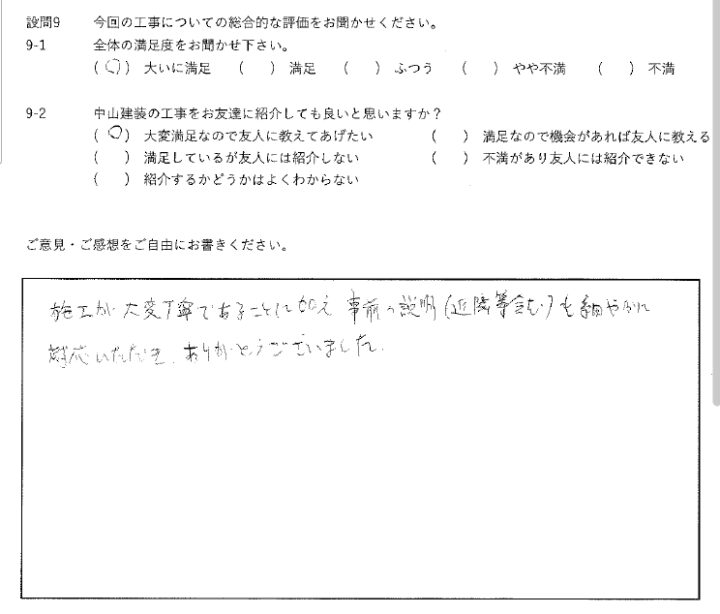 設問9　今回の工事についての総合的な評価をお聞かせください。
9-1　全体の満足度をお聞かせ下さい。
(○) 大いに満足　(　) 満足　(　) ふつう　(　) やや不満　(　) 不満
9-2　中山建装の工事をお友達に紹介しても良いと思いますか？
(○) 大変満足なので友人に教えてあげたい　(　) 満足なので機会があれば友人に教える
(　) 満足しているが友人には紹介しない　(　) 不満があり友人には紹介できない
(　) 紹介するかどうかはよくわからない
ご意見・ご感想をご自由にお書きください。
施工が大変丁寧であることに加え 事前の説明(近隣等含む)も細やかに
対応いただき、ありがとうございました。